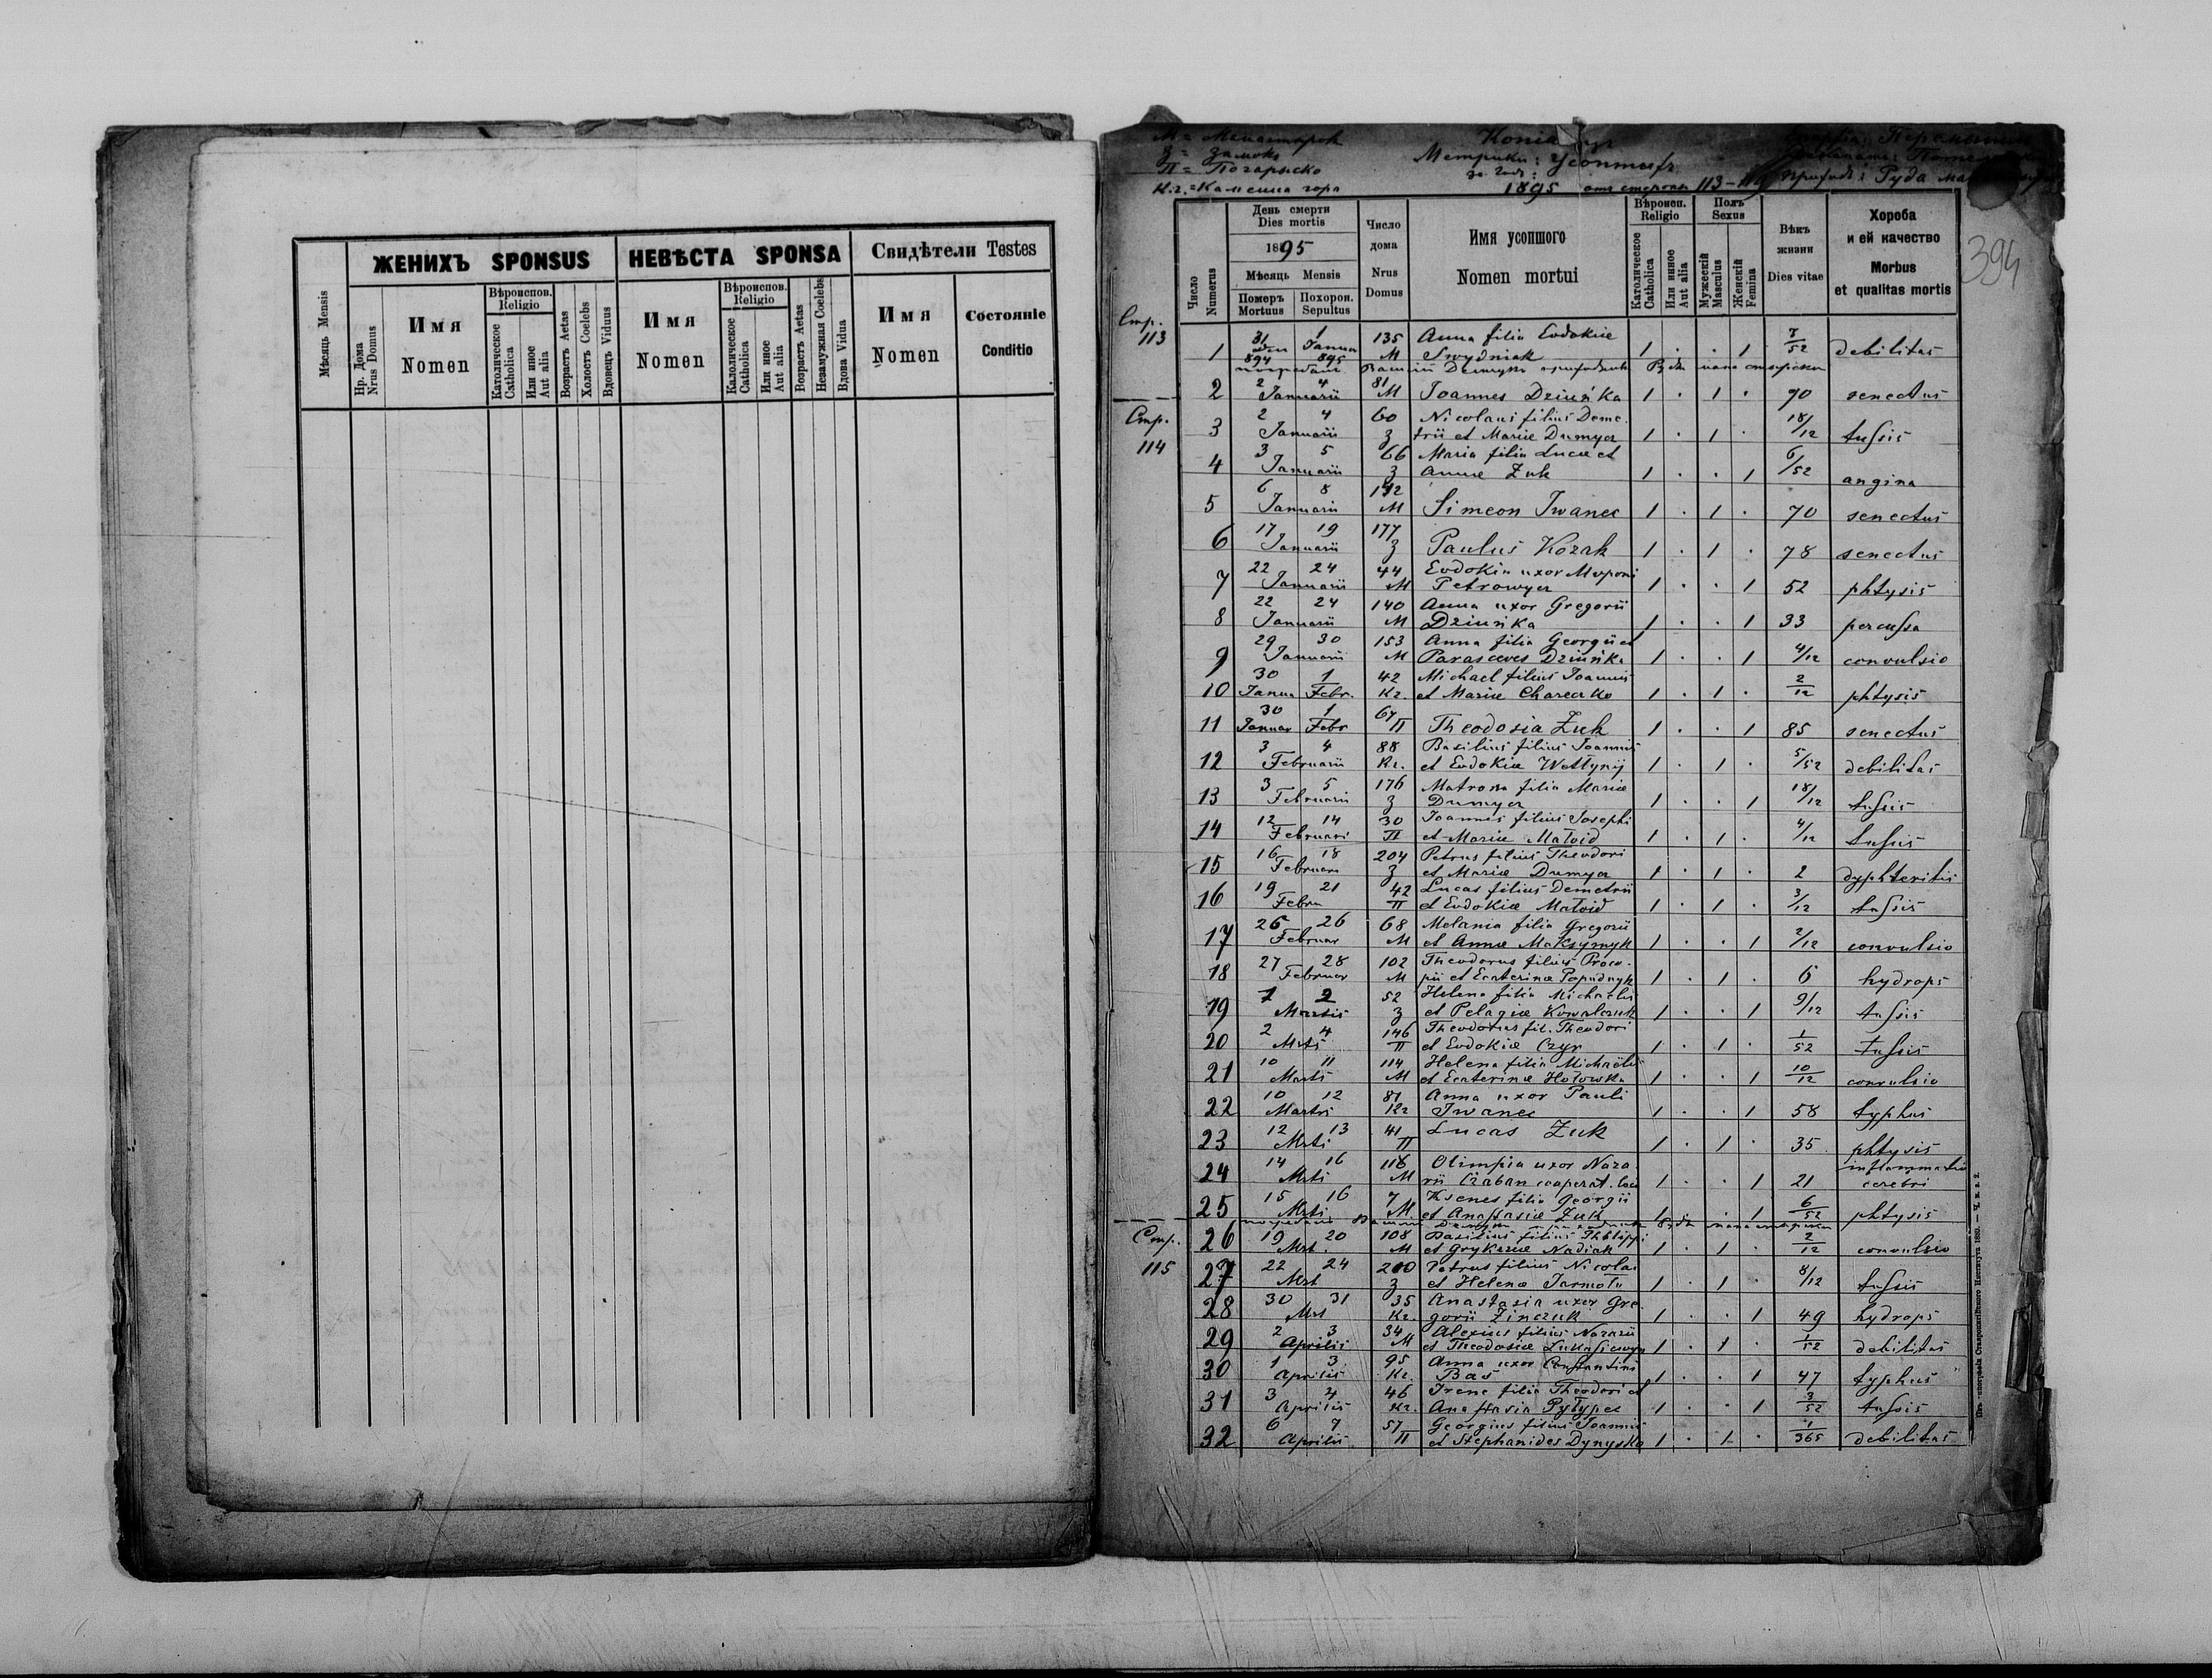 ЖЕНИХЪ SPONSUS
НЕВѢСТА SPONSA
Свидѣтели Testes
Мѣсяць Mensis
Нр. Дома Nrus Domus
Имя Nomen
Вѣроиспов. Religio
Католическое Catholica
Или иное Aut alia
Возрастъ Aetas
Холостъ Coelebs
Вдовець Viduus
Имя Nomen
Вѣроиспов. Religio
Католическое Catholica
Или иное Aut alia
Возрастъ Aetas
Незамужная Coelebs
Вдова Vidua
Имя Nomen
Состояніе Conditio
М = Монастырок
З = Замокъ
П = Погарыско
К.г. = Каменна гора
Копія
Метрики: Усопшихъ
за годъ:
1895 отъ стороны 113-
приходъ: Руда
394
Число Numerus
День смерти
Dies mortis
1895
Мѣсяць Mensis
Померъ Mortuus
Похорон. Sepultus
Число дома
Nrus Domus
Имя усопшого
Nomen mortui
Вѣроисп. Religio
Католическое Catholica
Или инное Aut alia
Полъ Sexus
Мужескій Masculus
Женскій Femina
Вѣкъ жизни
Dies vitae
Хороба
и ей качество
Morbus
et qualitas mortis
Стр. 113
31 1 135 Anna filia Evdokiae
1 894 Januar 895 M Swydniak 1 . . 1 7/52 debilitas
2 2 4 Januarii 81 M Joannes Dziuńka 1 . 1 . 90 senectus
Стр. 114
2 4 60 Nicolaus filius Deme-
3 Januarii З trii et Mariae Dumycz 1 . 1 . 18/12 tussis
3 5 66 Maria filia Lucae et
4 Januarii З Annae Żuk 1 . . 1 6/52 angina
6 8 192
5 Januarii M Simeon Iwanec 1 . 1 . 70 senectus
17 19 177
6 Januarii З Paulus Kozak 1 . 1 . 78 senectus
22 24 44 Evdokia uxor Myroni
7 Januarii M Petrowycz 1 . . 1 52 phtysis
22 24 140 Anna uxor Gregorii
8 Januarii M Dziuńka 1 . . 1 33 percussa
29 30 153 Anna filia Georgii et
9 Januarii M Parasceves Dziuńka 1 . . 1 4/12 convulsio
30 1 42 Michael filius Joannis
10 Janua Febr. Кг. et Mariae Chareczko 1 . 1 . 2/12 phtysis
30 1 67
11 Januar Febr П Theodosia Żuk 1 . . 1 85 senectus
3 4 88 Basilius filius Joannis
12 Februarii Кг. et Evdokiae Wettynij 1 . 1 . 5/52 debilitas
3 5 176 Matrona filia Mariae
13 Februarii З Dumycz 1 . . 1 18/12 tussis
12 14 30 Joannes filius Josephi
14 Februari П et Mariae Matwid 1 . 1 . 4/12 tussis
16 18 204 Petrus filius Theodori
15 Februari З et Mariae Dumycz 1 . 1 . 2 dyphteritis
19 21 42 Lucas filius Demetrii
16 Febru П et Evdokiae Matwid 1 . 1 . 3/12 tussis
25 26 68 Melania filia Gregorii
17 Februar M et Annae Maksymyk 1 . . 1 2/12 convulsio
27 28 102 Theodorus filius Proco-
18 Februar M pii et Ecaterinae Popadnyk 1 . 1 . 6 hydrops
1 2 52 Helena filia Michaelis
19 Martii З et Pelagiae Kowalczuk 1 . . 1 9/12 tussis
2 4 146 Theodorus fil. Theodori
20 Mrti П et Evdokiae Czyr 1 . 1 . 1/52 tussis
10 11 114 Helena filia Michaelis
21 Marti M et Ecaterinae Hołowka 1 . . 1 10/12 convulsio
10 12 81 Anna uxor Pauli
22 Martii Кг Iwanec 1 . . 1 58 typhus
12 13 41 Lucas Żuk
23 Mrti П 1 . 1 . 35 phtysis
14 16 118 Olimpia uxor Naza- inflammatio
24 Mrti M rii Czaban cooperat. loci 1 . . 1 21 cerebri
15 16 7 Ksenes filia Georgii
25 Mrti M et Anastasiae Żuk 1 . . 1 6/52 phtysis
Стр. 115
19 20 108 Basilius filius Philippi
26 Mrt. M et Grykerae Nadiak 1 . 1 . 2/12 convulsio
22 24 200 Petrus filius Nicolai
27 Mrt З et Helenae Jarmoła 1 . 1 . 8/12 tussis
30 31 35 Anastasia uxor Gre-
28 Mrt Кг. gorii Zinczuk 1 . . 1 49 hydrops
2 3 34 Alexius filius Nazarii
29 Aprilis M et Theodosiae Lukasiewycz 1 . 1 . 1/52 debilitas
1 3 95 Anna uxor Constantini
30 Aprilis Кг. Bas 1 . . 1 47 typhus
3 4 46 Irene filia Theodori et
31 Aprilis Кг. Anastasia Pyłypec 1 . . 1 3/52 tussis
6 7 57 Georgius filius Joannis
32 Aprilis П et Stephanides Dynyska 1 . 1 . 1/365 debilitas
Ставропигійского Института 1893.